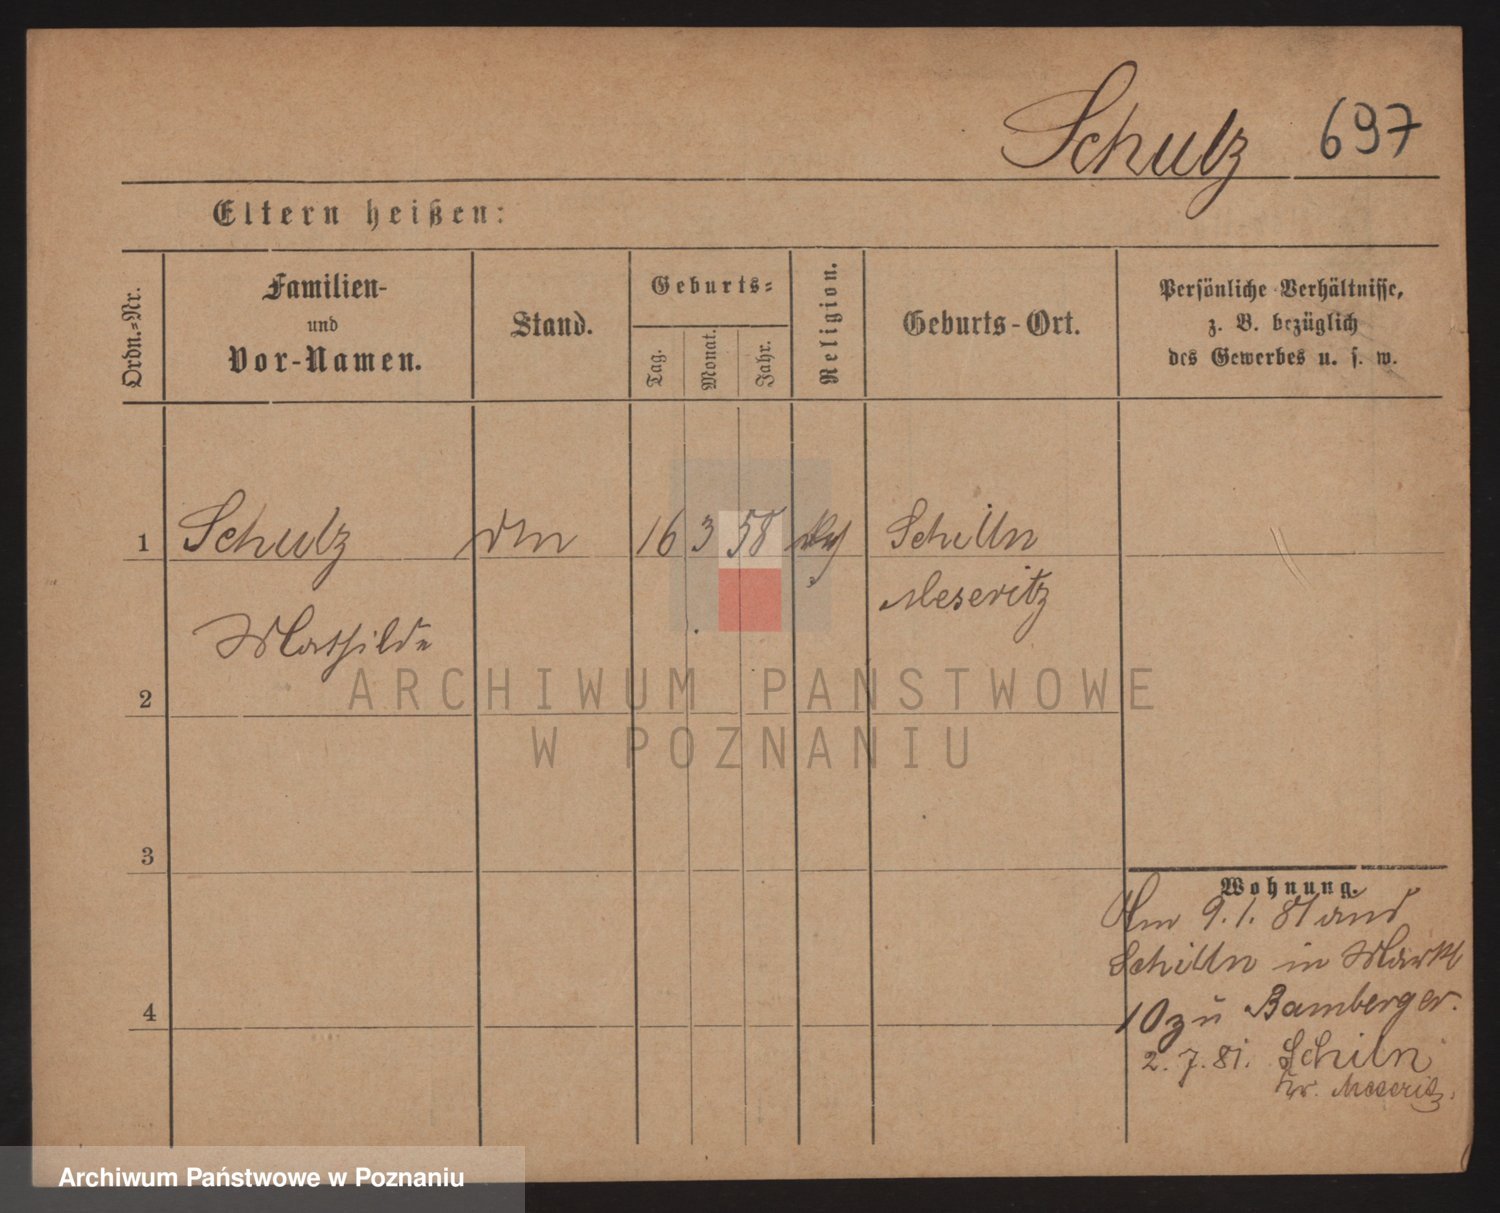 Schulz 697
Eltern heißen:
Ordn.-Nr.
Familien-
und
Vor-Namen.
Stand.
Geburts-
Tag.
Monat.
Jahr.
Religion.
Geburts-Ort.
Persönliche Verhältnisse,
z. B. bezüglich
des Gewerbes u. s. w.
1 Schulz 16 3 58 Schilln
Meseritz
Mathilde
2
ARCHIWUM PAŃSTWOWE
W POZNANIU
3
Wohnung.
9. 1. 81 aus
Schilln in Markt
10 zu Bamberger.
4
2. 7. 81. Schiln
Kr. Meseritz.
Archiwum Państwowe w Poznaniu